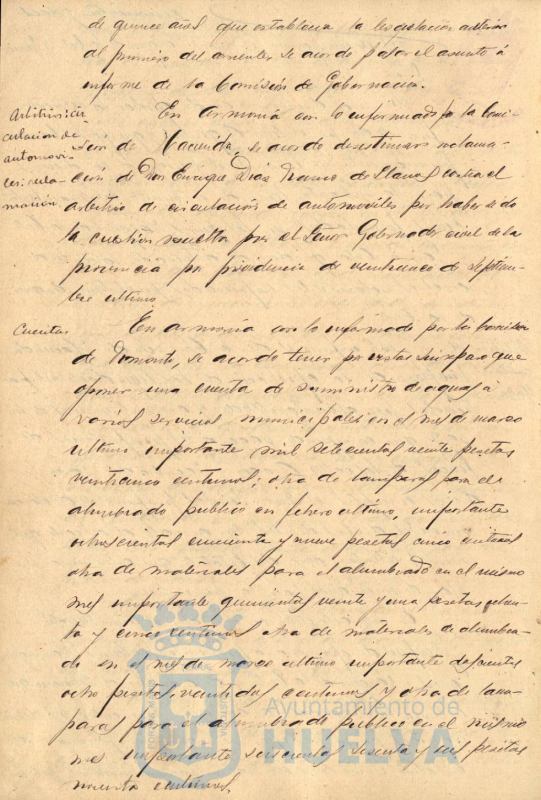 de quince años que establecia la legislacion anterior
al primero del corriente, se acordo pasar el asunto á
informe de la Comisión de Gobernación.
Arbitrio: cir
culacion de
automovi
les: recla-
mación.
En armonia con lo informado por la Comi
sión de Hacienda, se acordo desestimar reclama
ción de Don Enrique Diaz Franco de Llanos contra el
arbitrio de circulación de automoviles por haber sido
la cuestion resuelta por el Señor Gobernador civil de la
provincia por providencia de veinticinco de Septiem-
bre ultimo.
Cuentas.
En armonia con lo informado por la Comision
de Fomento, se acordo tener por vistas sin reparo que
oponer una cuenta de suministro de aguas á
varios servicios municipales en el mes de marzo
ultimo importante mil setecientas veinte pesetas
veinticinco centimos; otra de lamparas para el
alumbrado publico en febrero ultimo, importante
ochocientas cincuenta y nueve pesetas cinco centimos
otra de materiales para el alumbrado en el mismo
mes importante quinientas veinte y una pesetas ochen-
ta y cinco centimos, otra de materiales de alumbra-
do en el mes de marzo ultimo importante doscientas
ocho pesetas veintidos centimos y otra de lam-
paras para el alumbrado publico en el mismo
mes importante seiscientas sesenta y seis pesetas
noventa centimos.
Ayuntamiento de
HUELVA